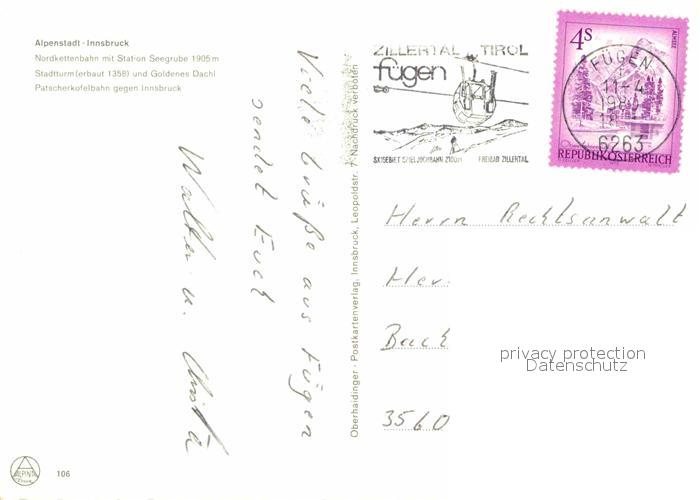 Alpenstadt-Innsbruck
Nordkettenbahn mit Station Seegrube 1905 m
Stadtturm (erbaut 1358) und Goldenes Dachl
Patscherkofelbahn gegen Innsbruck
Viele Grüße aus Fügen
sendet Euch
Walter u.
Oberhaidinger - Postkartenverlag, Innsbruck, Leopoldstr. 7 Nachdruck verboten
ZILLERTAL TIROL
fügen
SKIGEBIET SPIELJOCHBAHN 2100m FREIBAD ZILLERTAL
4S
ALMSEE
REPUBLIK ÖSTERREICH
FÜGEN
11-4
198
6263
Herrn Rechtsanwalt
Her
Back
3560
privacy protection
Datenschutz
ALPINA
Druck
106